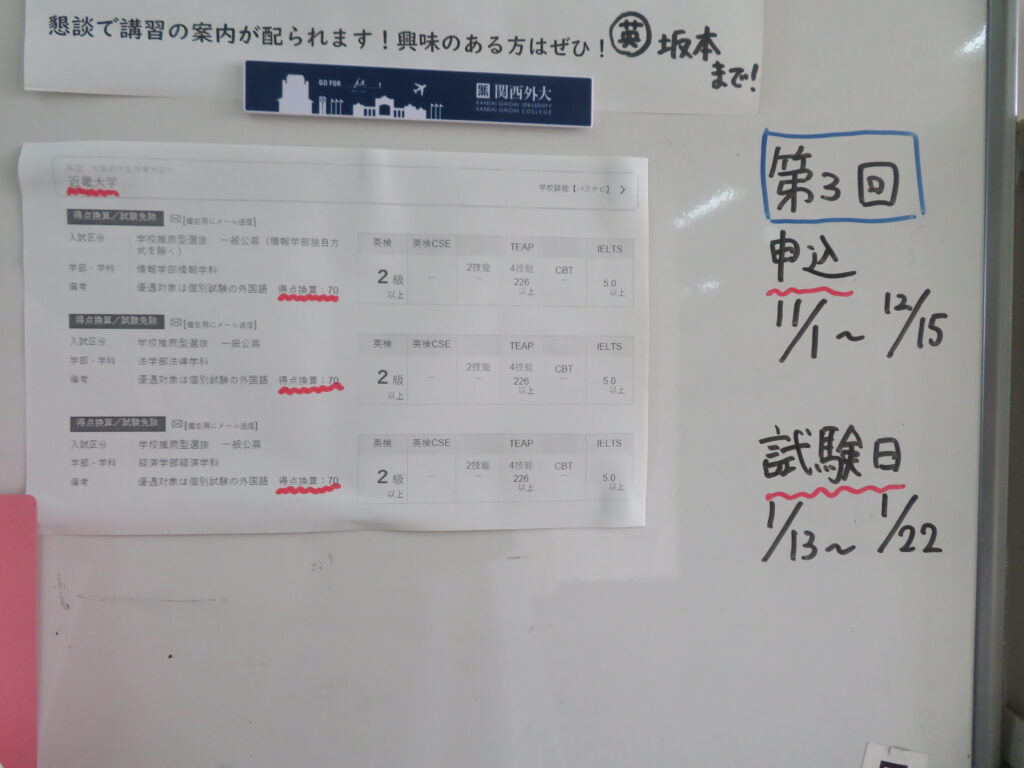 懇談で講習の案内が配られます！興味のある方はぜひ！英 坂本
まで！
GO FOR
関西外大
KANSAI GAIDAI UNIVERSITY
KANSAI GAIDAI COLLEGE
近畿大学
学校詳細【パスナビ】 >
得点換算／試験免除 [備忘用にメール送信]
入試区分 学校推薦型選抜 一般公募（情報学部独自方
式を除く）
学部・学科 情報学部情報学科
備考 優遇対象は個別試験の外国語 得点換算：70
英検 英検CSE TEAP IELTS
2技能 4技能 CBT
2級 － － 226 － 5.0
以上 以上 以上
得点換算／試験免除 [備忘用にメール送信]
入試区分 学校推薦型選抜 一般公募
学部・学科 法学部法律学科
備考 優遇対象は個別試験の外国語 得点換算：70
英検 英検CSE TEAP IELTS
2技能 4技能 CBT
2級 － － 226 － 5.0
以上 以上 以上
得点換算／試験免除 [備忘用にメール送信]
入試区分 学校推薦型選抜 一般公募
学部・学科 経済学部経済学科
備考 優遇対象は個別試験の外国語 得点換算：70
英検 英検CSE TEAP IELTS
2技能 4技能 CBT
2級 － － 226 － 5.0
以上 以上 以上
第3回
申込
11/1～12/15
試験日
1/13～1/22